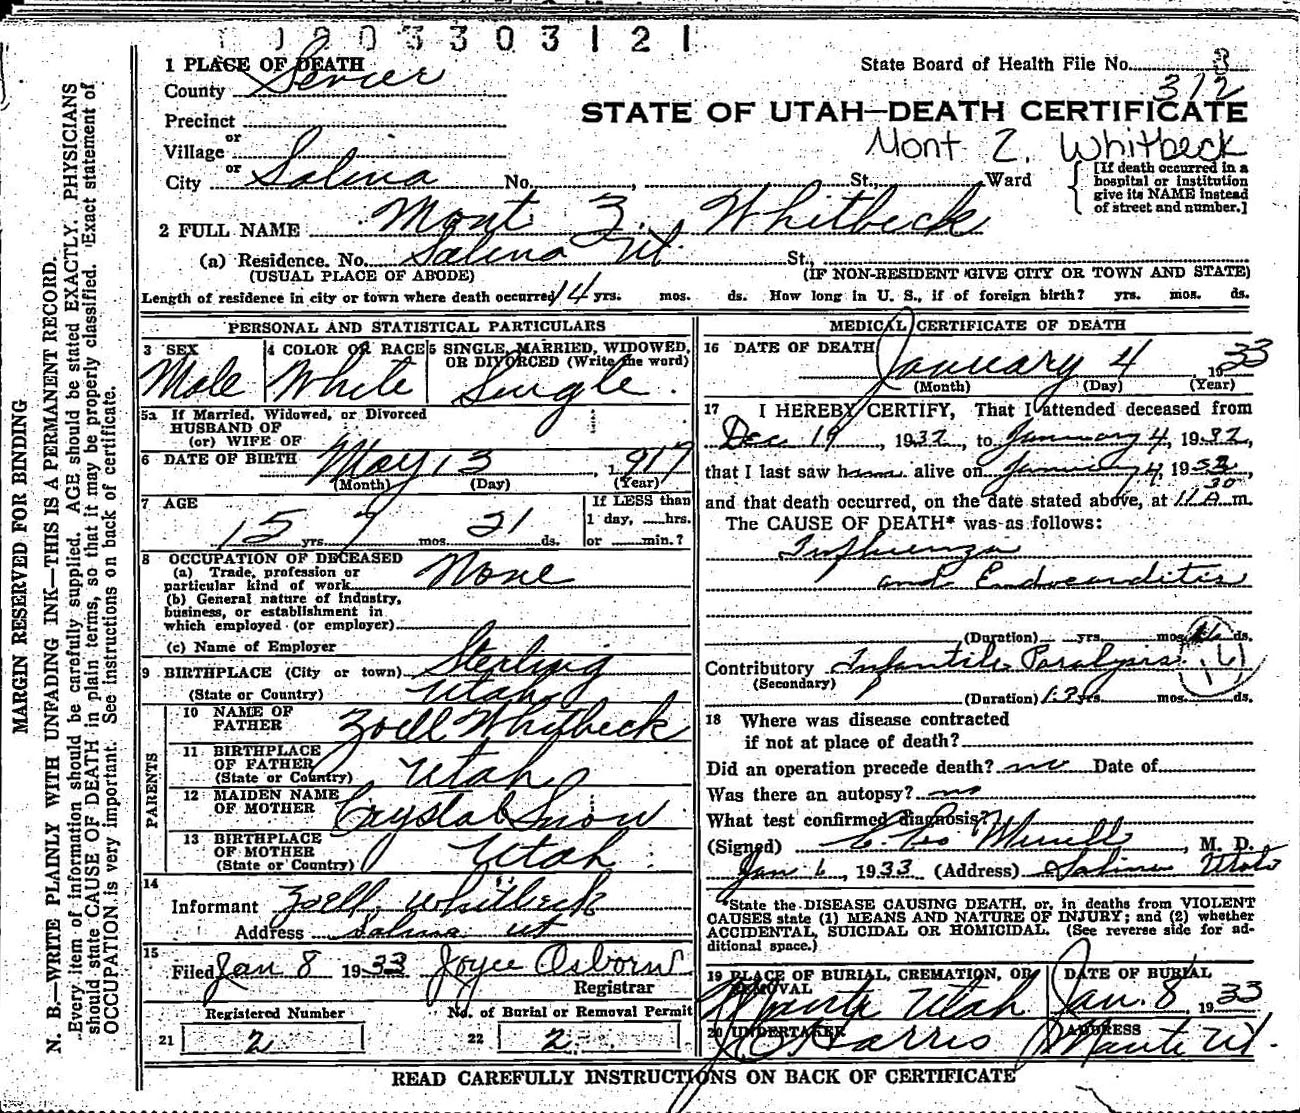 1 9 0 3 3 0 3 1 2 1
1 PLACE OF DEATH
County Sevier
State Board of Health File No. 3
312
Precinct
STATE OF UTAH—DEATH CERTIFICATE
or
Village
Mont Z. Whitbeck
or
City Salina No. , St., Ward
[If death occurred in a hospital or institution give its NAME instead of street and number.]
2 FULL NAME Mont Z. Whitbeck
(a) Residence. No. Salina Ut. St.,
(USUAL PLACE OF ABODE) (IF NON-RESIDENT GIVE CITY OR TOWN AND STATE)
Length of residence in city or town where death occurred 14 yrs. mos. ds. How long in U. S., if of foreign birth? yrs. mos. ds.
PERSONAL AND STATISTICAL PARTICULARS
3 SEX
Male
4 COLOR OR RACE
White
5 SINGLE, MARRIED, WIDOWED, OR DIVORCED (Write the word)
Single.
5a If Married, Widowed, or Divorced
HUSBAND OF
(or) WIFE OF
6 DATE OF BIRTH May 13, 1917
(Month) (Day) (Year)
7 AGE
15 yrs. 7 mos. 21 ds.
If LESS than
1 day, hrs.
or min.?
8 OCCUPATION OF DECEASED
(a) Trade, profession or
particular kind of work None
(b) General nature of industry,
business, or establishment in
which employed (or employer)
(c) Name of Employer
9 BIRTHPLACE (City or town) Sterling
(State or Country) Utah
PARENTS
10 NAME OF FATHER Zoell Whitbeck
11 BIRTHPLACE OF FATHER
(State or Country) Utah
12 MAIDEN NAME OF MOTHER Crystal Snow
13 BIRTHPLACE OF MOTHER
(State or Country) Utah
14
Informant Zoell Whitbeck
Address Salina Ut
15
Filed Jan 8 1933 Joyce Osborn
Registrar
Registered Number
21 2
No. of Burial or Removal Permit
22 2
MEDICAL CERTIFICATE OF DEATH
16 DATE OF DEATH
January 4, 1933
(Month) (Day) (Year)
17 I HEREBY CERTIFY, That I attended deceased from
Dec 19, 1932, to January 4, 1932,
that I last saw him alive on January 4, 1932,
and that death occurred, on the date stated above, at 11 30 A m.
The CAUSE OF DEATH* was as follows:
Influenza
and Endocarditis
(Duration) yrs. mos. ds.
Contributory Infantile Paralysis
(Secondary)
(Duration) yrs. mos. ds.
18 Where was disease contracted
if not at place of death?
Did an operation precede death? no Date of
Was there an autopsy? no
What test confirmed diagnosis?
(Signed) , M. D.
Jan 6, 1933 (Address) Salina Utah
*State the DISEASE CAUSING DEATH, or, in deaths from VIOLENT
CAUSES state (1) MEANS AND NATURE OF INJURY; and (2) whether
ACCIDENTAL, SUICIDAL OR HOMICIDAL. (See reverse side for ad-
ditional space.)
19 PLACE OF BURIAL, CREMATION, OR REMOVAL
Manti Utah
DATE OF BURIAL
Jan. 8, 1933
20 UNDERTAKER
Harris
ADDRESS
Manti Ut.
READ CAREFULLY INSTRUCTIONS ON BACK OF CERTIFICATE
MARGIN RESERVED FOR BINDING
N. B.—WRITE PLAINLY WITH UNFADING INK—THIS IS A PERMANENT RECORD.
Every item of information should be carefully supplied. AGE should be stated EXACTLY. PHYSICIANS
should state CAUSE OF DEATH in plain terms, so that it may be properly classified. Exact statement of
OCCUPATION is very important. See instructions on back of certificate.